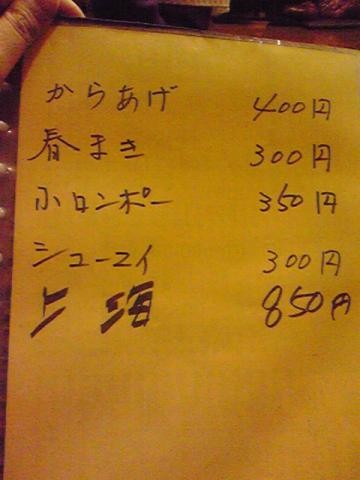 からあげ 400円
春まき 300円
小ロンポー 350円
シューマイ 300円
上海 850円